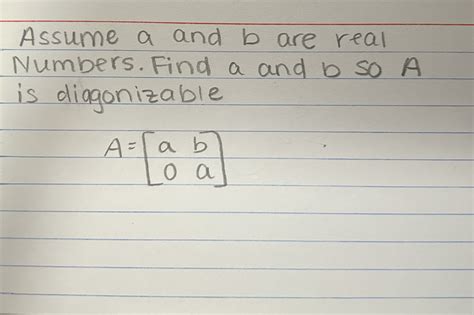 Assume a and b are real
Numbers. Find a and b so A
is diagonizable
A = [a b
0 a]